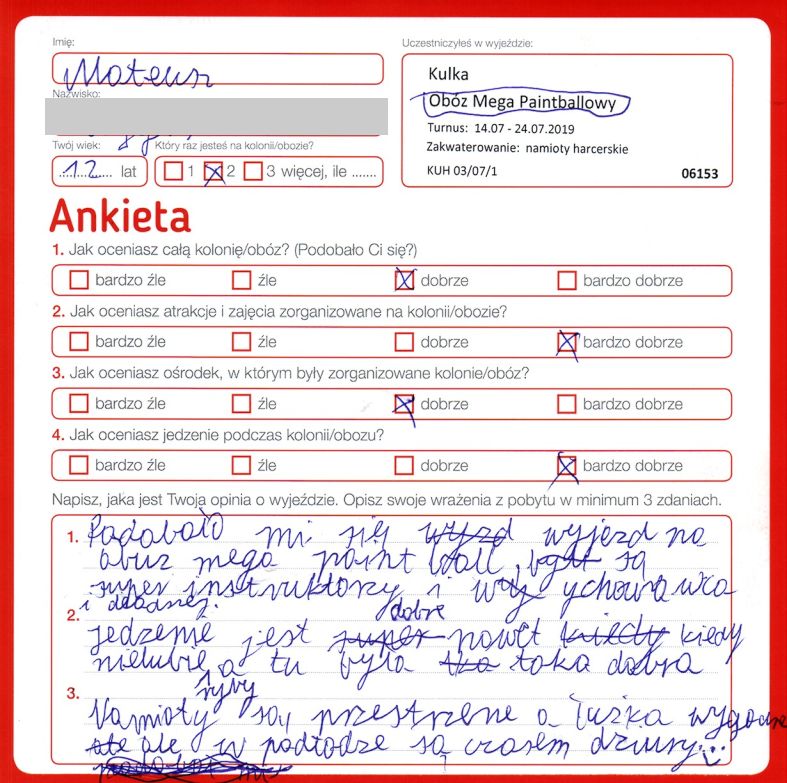 Imię:
Mateusz
Nazwisko:
Twój wiek: Który raz jesteś na kolonii/obozie?
12 lat 1 2 3 więcej, ile .......
Uczestniczyłeś w wyjeździe:
Kulka
Obóz Mega Paintballowy
Turnus: 14.07 - 24.07.2019
Zakwaterowanie: namioty harcerskie
KUH 03/07/1 06153
Ankieta
1. Jak oceniasz całą kolonię/obóz? (Podobało Ci się?)
bardzo źle źle dobrze bardzo dobrze
2. Jak oceniasz atrakcje i zajęcia zorganizowane na kolonii/obozie?
bardzo źle źle dobrze bardzo dobrze
3. Jak oceniasz ośrodek, w którym były zorganizowane kolonie/obóz?
bardzo źle źle dobrze bardzo dobrze
4. Jak oceniasz jedzenie podczas kolonii/obozu?
bardzo źle źle dobrze bardzo dobrze
Napisz, jaka jest Twoja opinia o wyjeździe. Opisz swoje wrażenia z pobytu w minimum 3 zdaniach.
1. Podobało mi się wyjzd wyjezd na
obuz mega paint ball, są
super instruktorzy i wychowawca
i
2. jedzenie jest super dobre nawet kiedy kiedy
nielubie ryby a tu była taka dobra
3. Namioty są przestrzene a łużka wygodne
ale ale w podłodze są czasem dziury :)